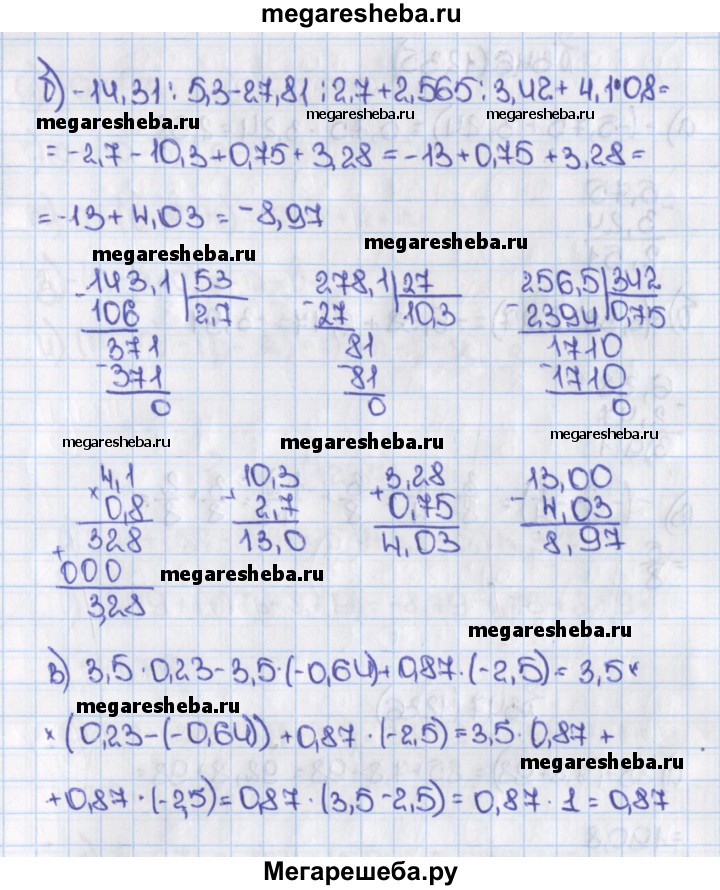 megaresheba.ru
б) -14,31 : 5,3-27,81 : 2,7+2,565 : 3,42+ 4,1·0,8=
megaresheba.ru megaresheba.ru megaresheba.ru
= -2,7 - 10,3+0,75+ 3,28 = -13+0,75 +3,28=
=-13+ 4,03 = -8,97
megaresheba.ru
megaresheba.ru
-143,1 | 53 278,1 | 27 256,5 | 342
106 2,7 -27 10,3 -2394 0,75
371 81 1710
-371 -81 -1710
0 0 0
megaresheba.ru megaresheba.ru megaresheba.ru
4,1 10,3 3,28 13,00
×0,8 +2,7 +0,75 -4,03
328 13,0 4,03 8,97
+000 megaresheba.ru
3,28
megaresheba.ru
в) 3,5·0,23-3,5·(-0,64)+0,87·(-2,5)= 3,5×
megaresheba.ru
×(0,23-(-0,64)) +0,87·(-2,5)=3,5·0,87 +
megaresheba.ru
+0,87·(-2,5)= 0,87·(3,5-2,5)= 0,87·1=0,87
Мегарешеба.ру